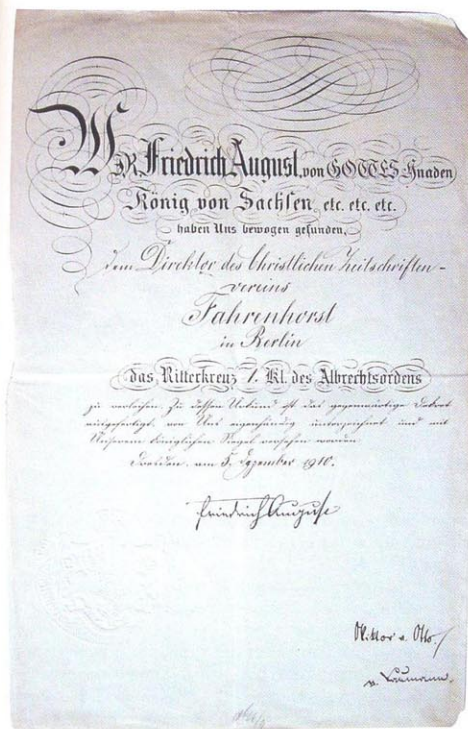 WIR Friedrich August, von GOTTES Gnaden
König von Sachsen, etc. etc. etc.
haben Uns bewogen gefunden,
dem Direktor des Christlichen Zeitschriften-
vereins
Fahrenhorst
in Berlin
das Ritterkreuz 1. Kl. des Albrechtsordens
zu verleihen. Zu dessen Urkund ist das gegenwärtige Dekret
ausgefertigt, von Uns eigenhändig unterzeichnet und mit
Unserem königlichen Siegel versehen worden.
Dresden, am 5. Dezember 1910.
Friedrich August
v. Otto.
v. Baumann.